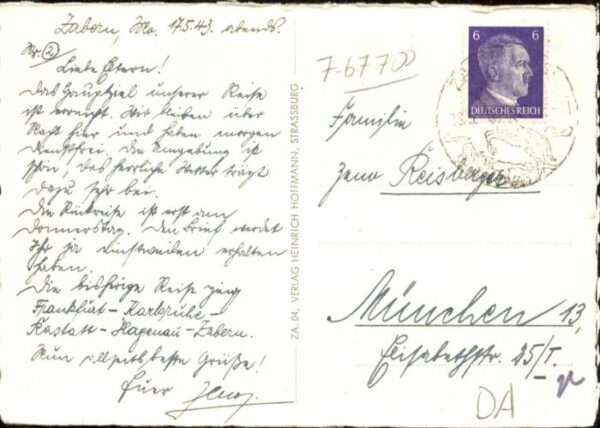 Zabern, Mo. 17.5.43. abends.
Nr. 2
Liebe Eltern!
Das Hauptziel unserer Reise
ist erreicht. Wir bleiben über
Nacht hier und haben morgen
dienstfrei. Die Umgebung ist
schön, das herrliche Wetter trägt
dazu sehr bei.
Die Rückreise ist erst am
Donnerstag. Den Brief werdet
Ihr ja einstweilen erhalten
haben.
Die bisherige Reise ging
Frankfurt - Karlsruhe -
Rastatt - Hagenau - Zabern.
Nun allseits beste Grüße!
Euer
ZA. 04, VERLAG HEINRICH HOFFMANN, STRASSBURG
7-67700
6 6
DEUTSCHES REICH
Familie
Reisberger
München 13,
Elisabethstr. 25/I.
DA